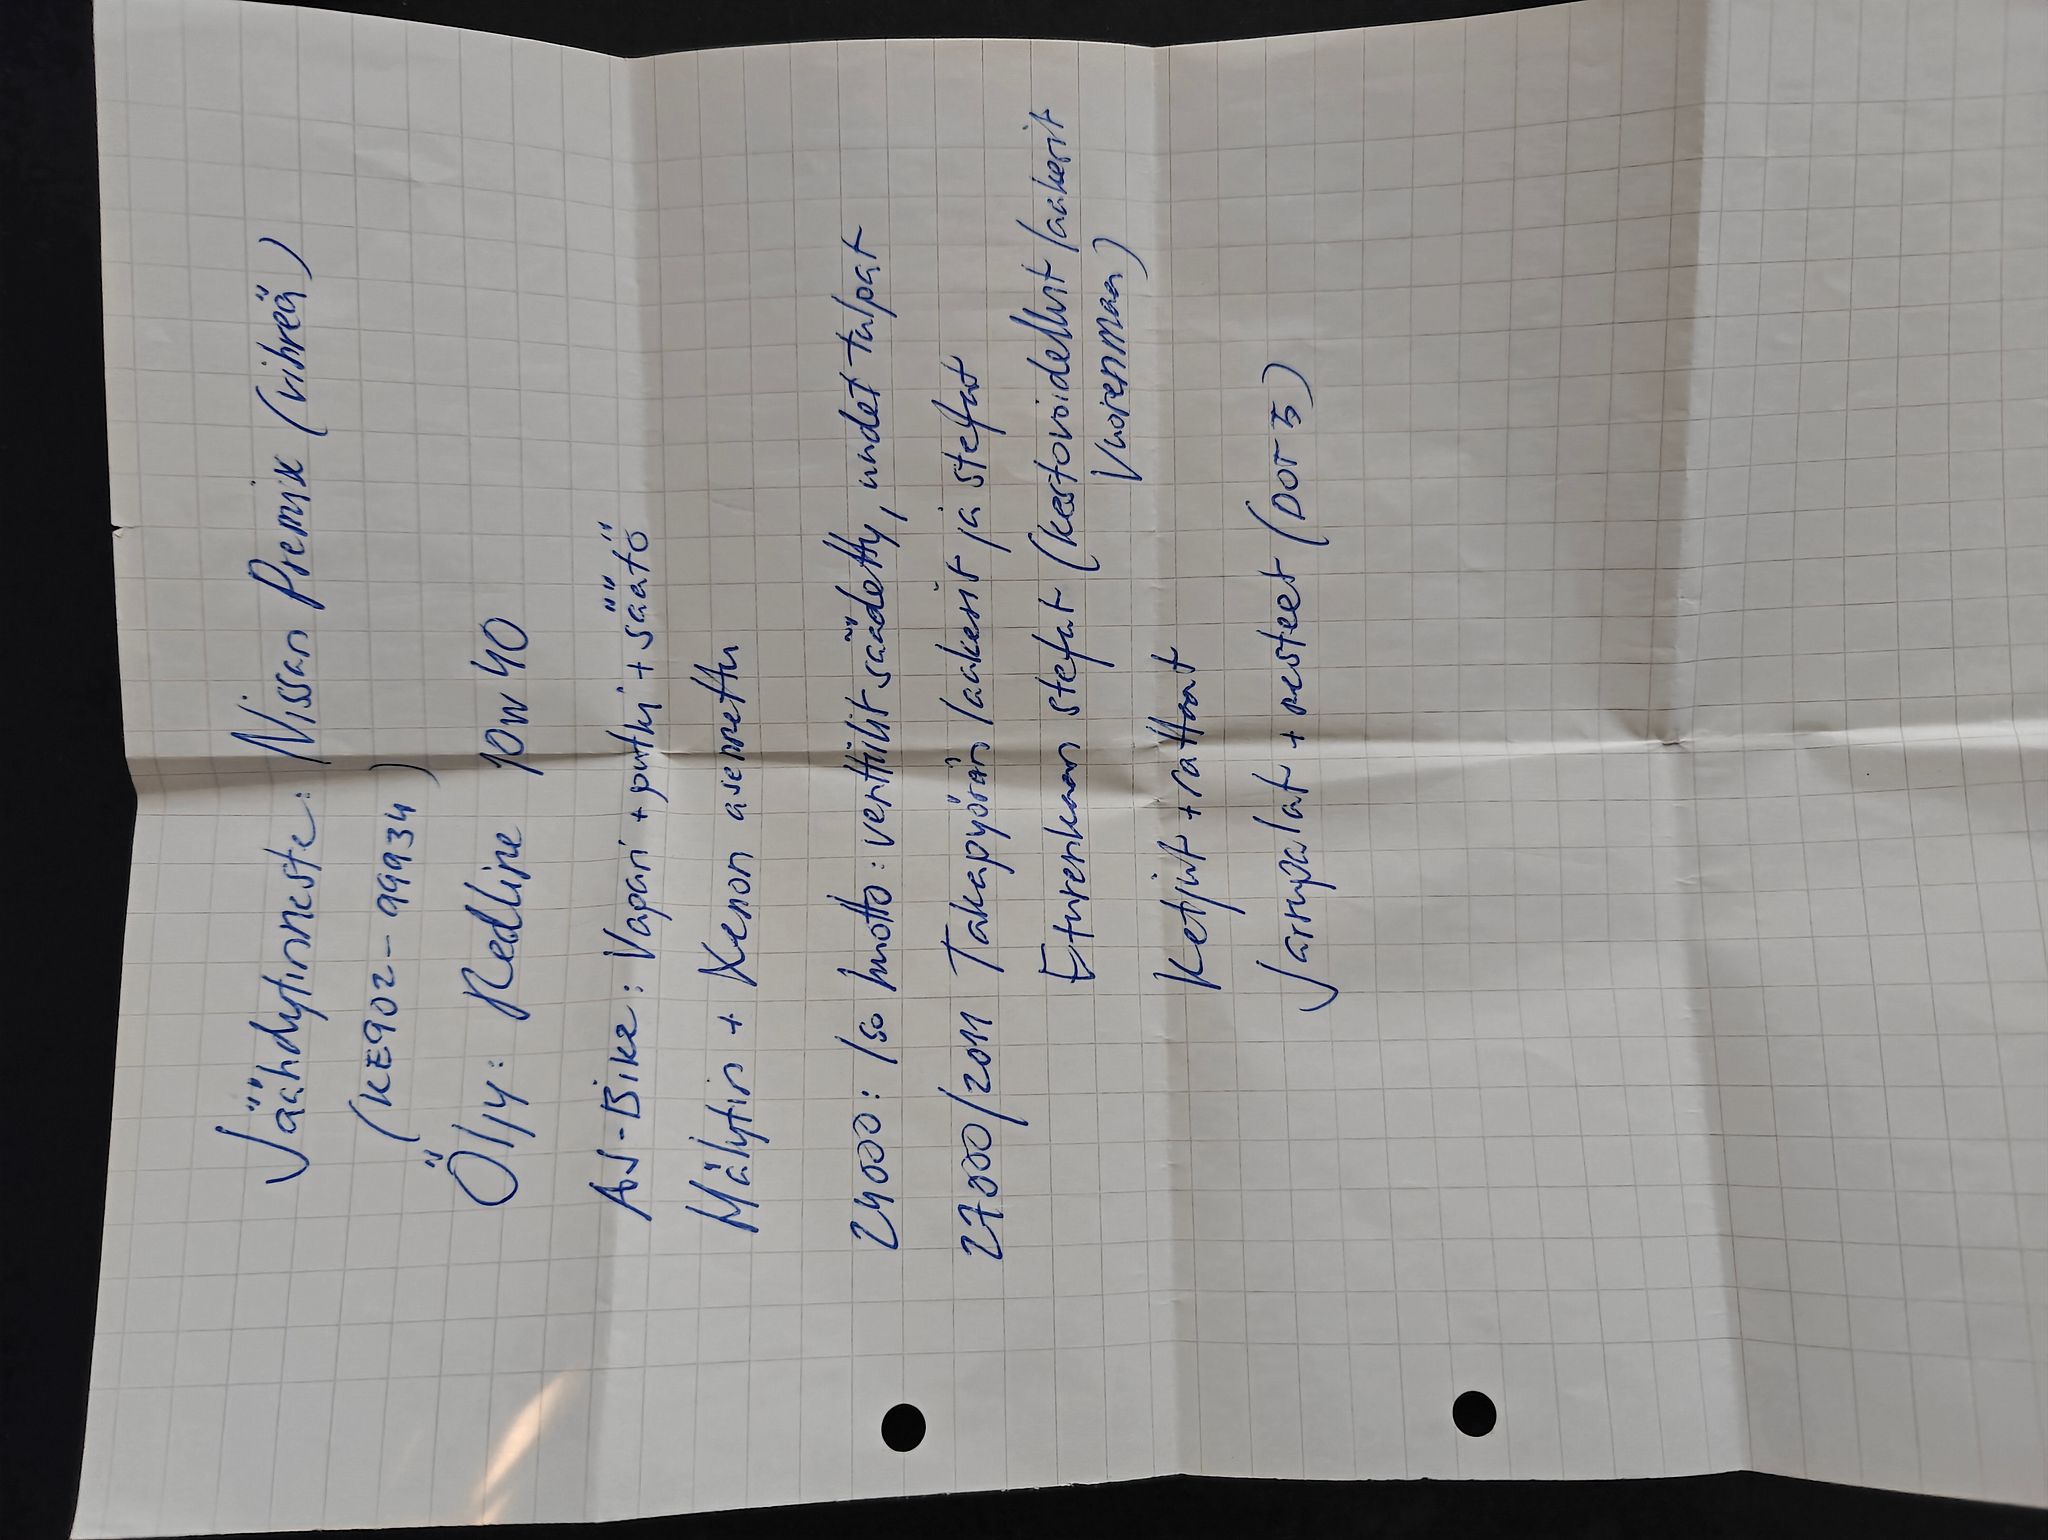 Jäähdytinneste: Nissan Premix (vihreä)
(KE902-99934)
Öljy: Redline 10W40
AS-Bike: Vapari + putki + säätö
Mälytin + Xenon asennettu
24000: Iso huolto: venttiilit säädetty, uudet tulpat
27000/2011 Takapyörän laakerit ja stefat
Eturenkaan stefat (kestovoidellut laakerit
Vuorenmaa)
Ketjut + rattaat
Jarrupalat + nesteet (DOT 5)